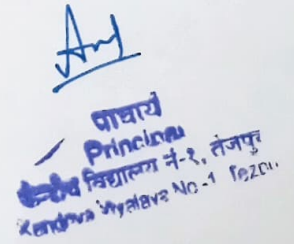 प्राचार्य
Principal
केन्द्रीय विद्यालय नं-१, तेजपुर
Kendriya Vidyalaya No-1 Tezpur